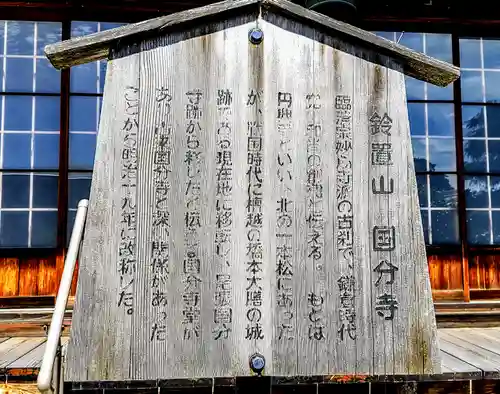 鈴置山 国分寺
臨済宗妙心寺派の古刹で、鎌倉時代
の創建と伝える。もとは
円興寺といい、北の一本松にあった
が、戦国時代に梶越の橋本大膳の城
跡である現在地に移転し、尾張国分
寺跡から移したと伝う国分寺堂が
あり、尾張国分寺と深い関係があった
ことから明治十九年に改称した。